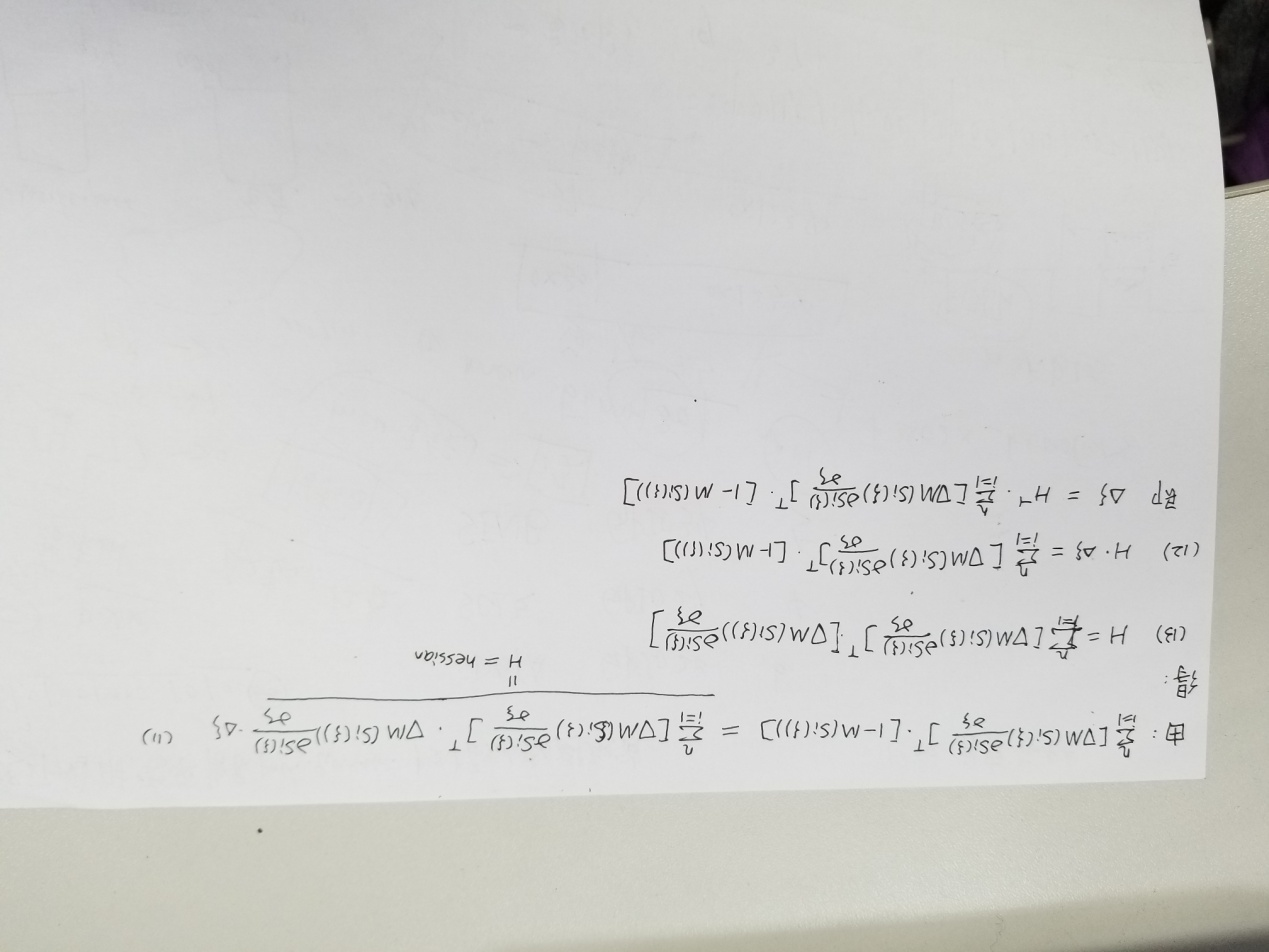 由: \sum_{i=1}^{n} [∇M(S_i(ξ)) \frac{∂S_i(ξ)}{∂ξ}]^T · [1-M(S_i(ξ))] = \sum_{i=1}^{n} [∇M(S_i(ξ)) \frac{∂S_i(ξ)}{∂ξ}]^T · ∇M(S_i(ξ)) \frac{∂S_i(ξ)}{∂ξ} · Δξ (11)
|| 
H = hessian
得:
(13) H = \sum_{i=1}^{n} [∇M(S_i(ξ)) \frac{∂S_i(ξ)}{∂ξ}]^T · [∇M(S_i(ξ)) \frac{∂S_i(ξ)}{∂ξ}]
(12) H · Δξ = \sum_{i=1}^{n} [∇M(S_i(ξ)) \frac{∂S_i(ξ)}{∂ξ}]^T · [1-M(S_i(ξ))]
即 Δξ = H^{-1} · \sum_{i=1}^{n} [∇M(S_i(ξ)) \frac{∂S_i(ξ)}{∂ξ}]^T · [1-M(S_i(ξ))]